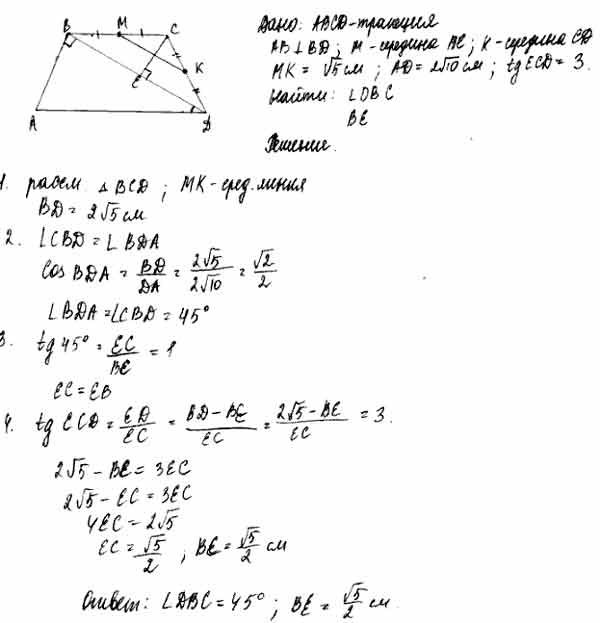 B M C
K
E
A D
Дано: ABCD-трапеция
AB⊥BD; M-середина BC; K-середина CD
MK = √5 см; AD = 2√10 см; tg ECD = 3.
Найти: ∠DBC
BE
Решение.
1. рассм. △BCD; MK-сред. линия
BD = 2√5 см
2. ∠CBD = ∠BDA
cos BDA = BD/DA = 2√5/2√10 = √2/2
∠BDA = ∠CBD = 45°
3. tg 45° = EC/BE = 1
EC = EB
4. tg ECD = ED/EC = BD-BE/EC = 2√5-BE/EC = 3.
2√5 - BE = 3EC
2√5 - EC = 3EC
4EC = 2√5
EC = √5/2; BE = √5/2 см
Ответ: ∠DBC = 45°; BE = √5/2 см.